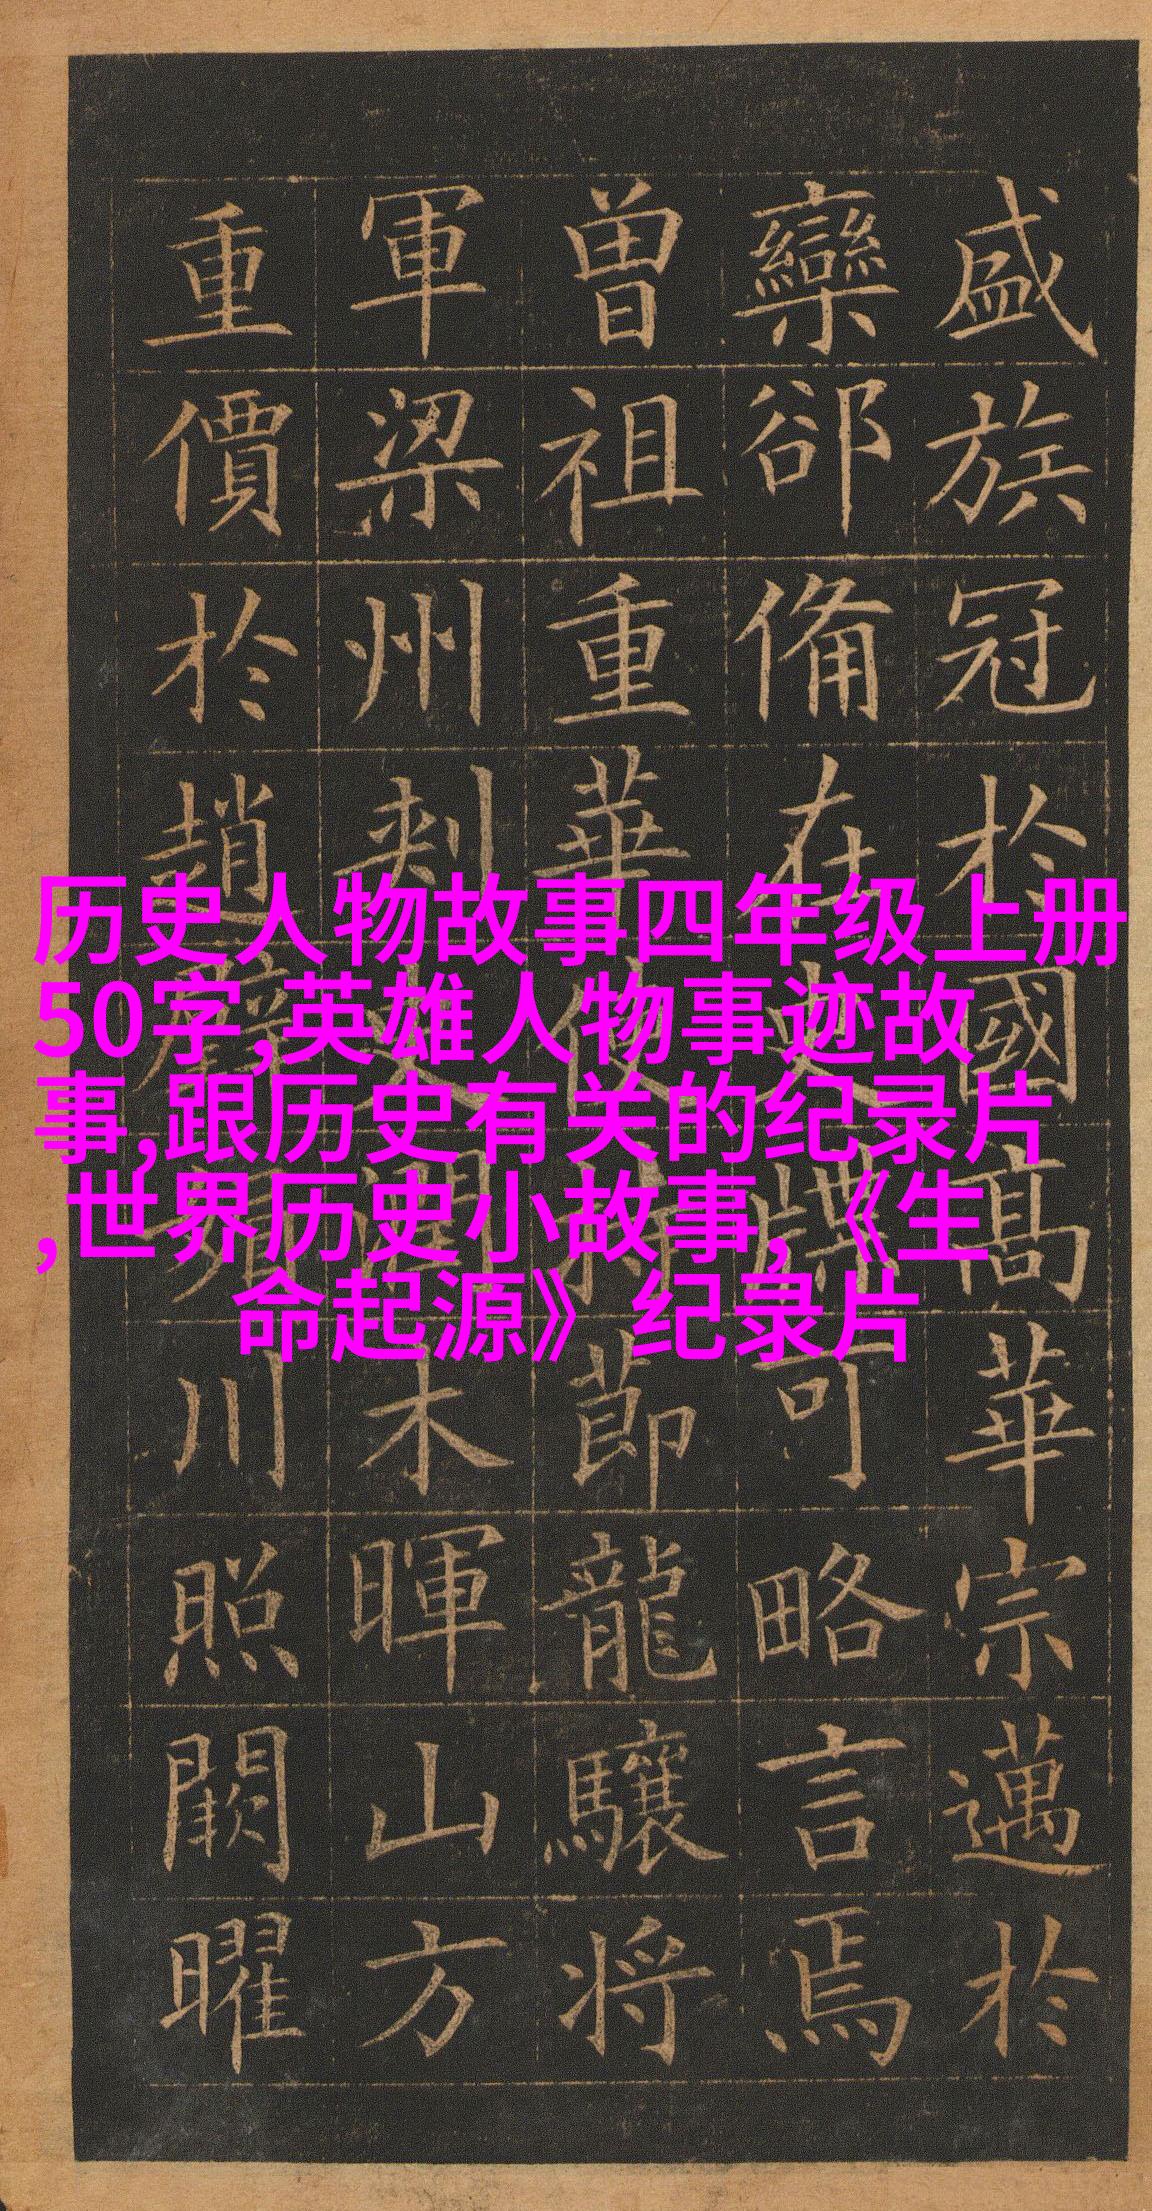 历史人物故事四年级上册
50字,英雄人物事迹故
事,跟历史有关的纪录片
,世界历史小故事,《生
命起源》纪录片
盛族冠於國高華宗邁於
欒郤俻在史牒可略言焉
曽祖重華使持節龍驤将
軍梁州刺史潤木暉山方
重價於趙璧媚川照闕曜